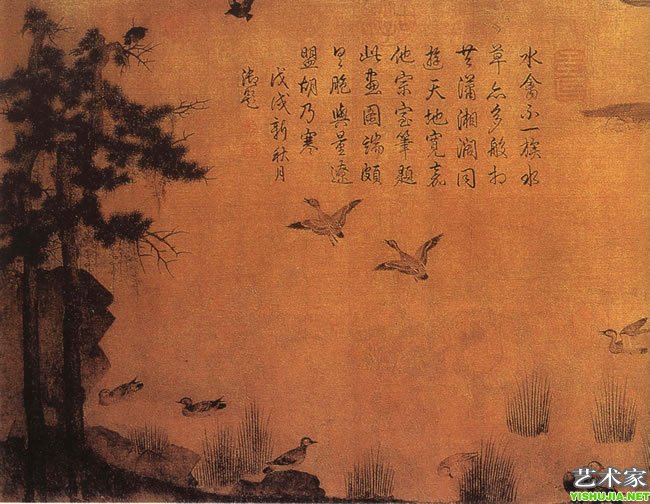 水禽不一族水
草亦多般相
共瀟湘濶同
遊天地寬嘉
他宗室筆題
此畫圖端頗
具胞與量遼
盟胡乃寒
戊戌新秋月
御題
艺术家
YISHUJIA.NET